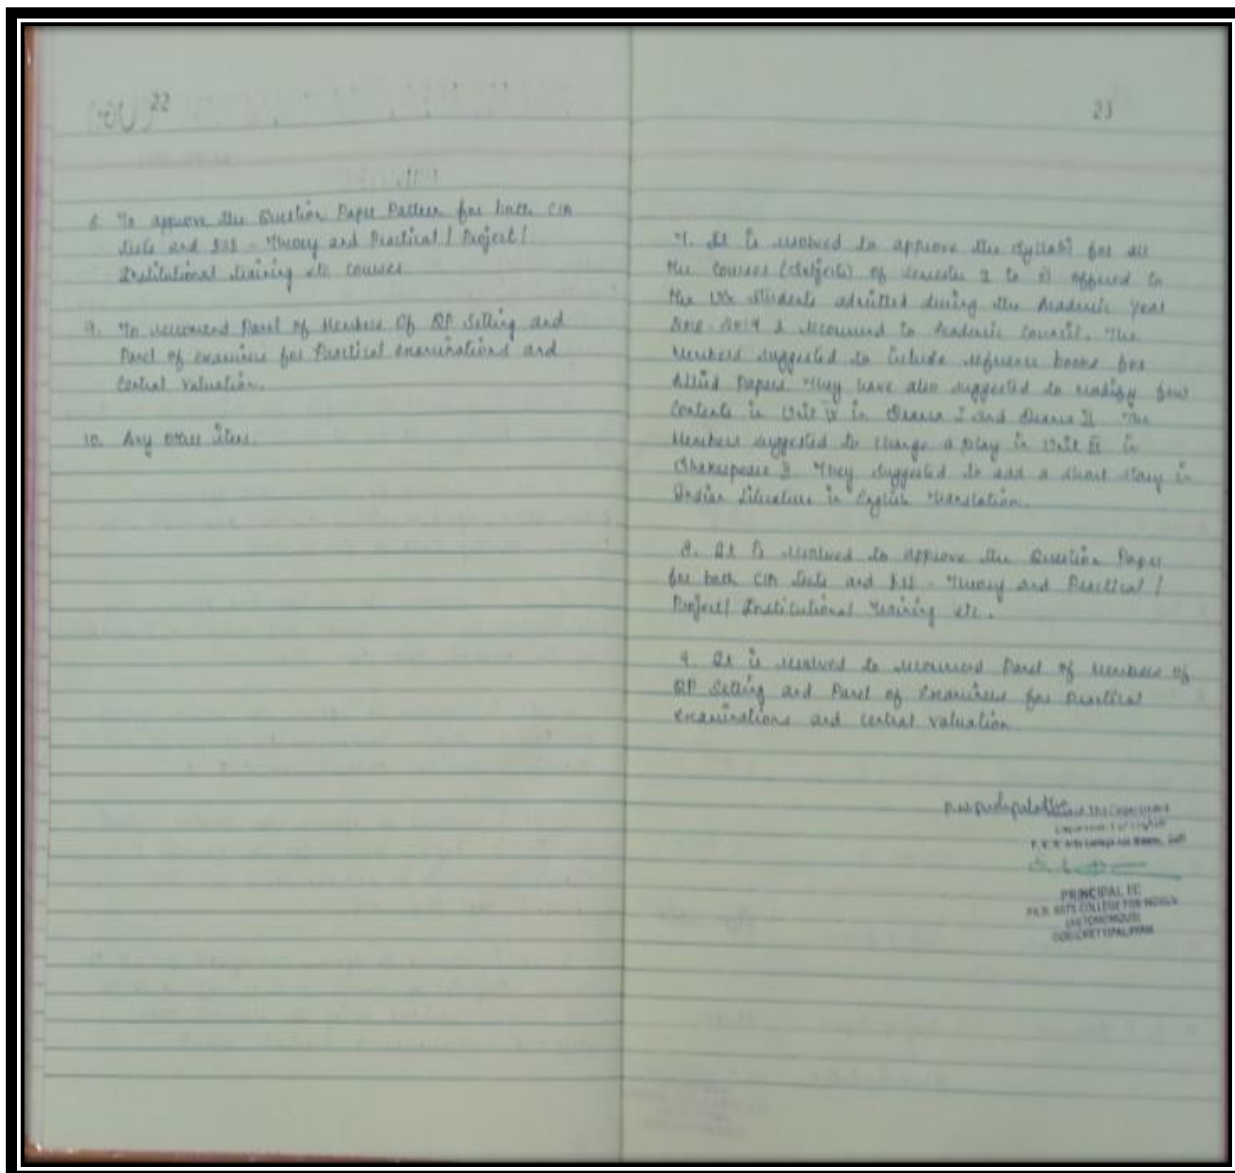 22
8. To approve the Question Paper Pattern for both CIA
tests and ESE - Theory and Practical / Project /
Institutional training etc courses
9. To recommend Panel of Members Of QP Setting and
Panel of examiners for Practical examinations and
Central Valuation.
10. Any other Item.
23
7. It is resolved to approve the Syllabi for all
the Courses (Subjects) of Semester I to VI offered to
the students admitted during the Academic year
2018-2019 & recommend to Academic Council. The
Members suggested to include reference books for
Allied Papers. They have also suggested to modify few
Contents in Unit IV in Drama I and Drama II. The
Members suggested to change a play in Unit III in
Shakespeare II. They suggested to add a short story in
Indian Literature in English Translation.
8. It is resolved to approve the Question Paper
for both CIA tests and ESE - Theory and Practical /
Project / Institutional Training etc.
9. It is resolved to recommend Panel of Members of
QP Setting and Panel of Examiners for Practical
examinations and central valuation.
Department of English
P.K.R. Arts College for Women, Gobi
PRINCIPAL I/C
P.K.R. ARTS COLLEGE FOR WOMEN
(AUTONOMOUS)
GOBICHETTIPALAYAM